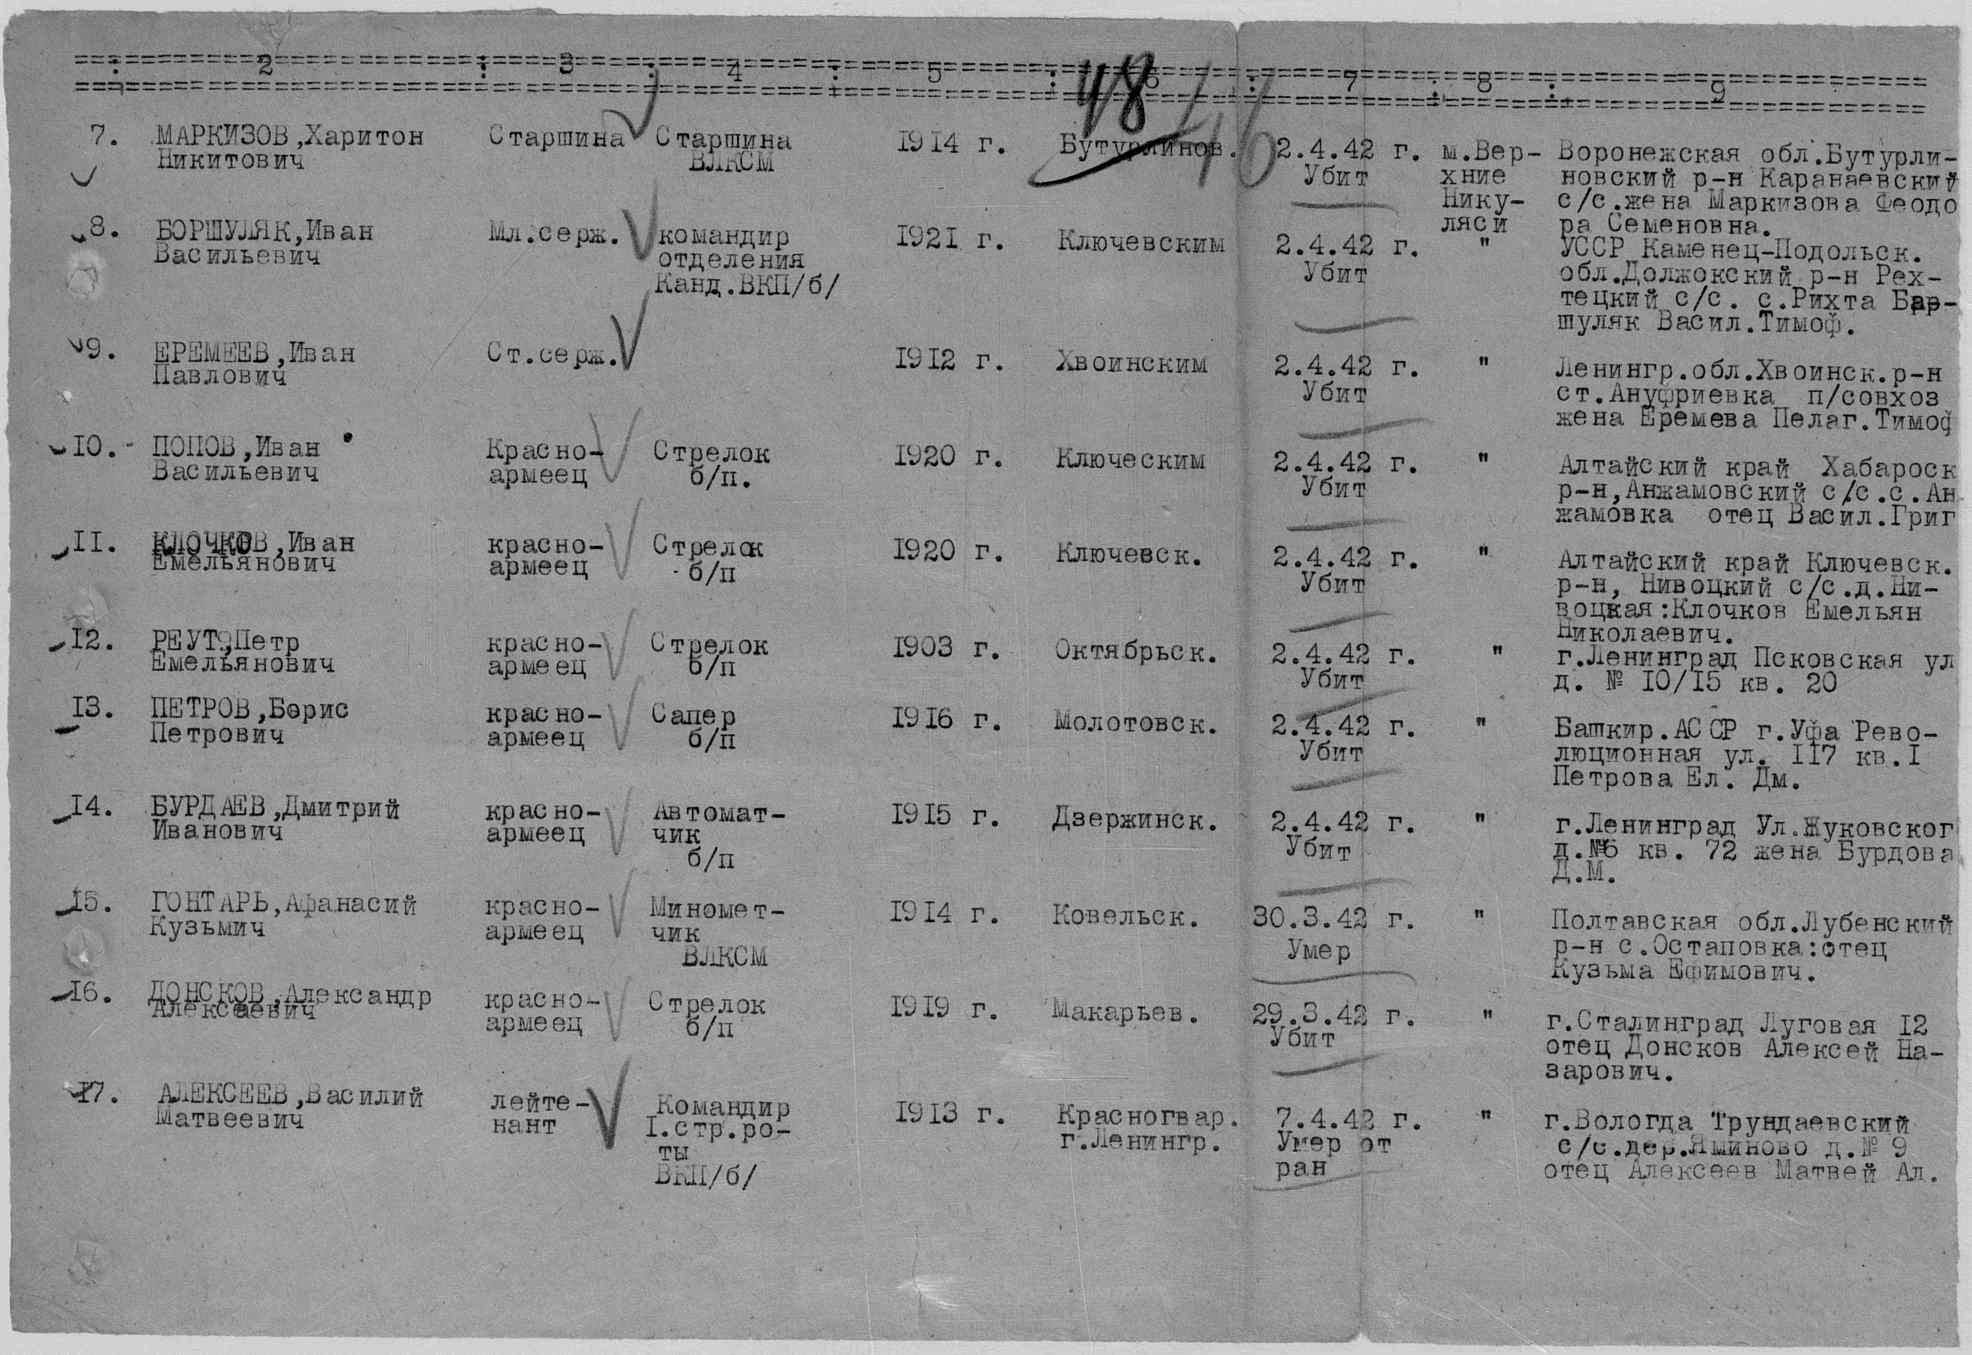 2 3 4 5 6 7 8 9
48 46
7. МАРКИЗОВ,Харитон Старшина Старшина 1914 г. Бутурлинов. 2.4.42 г. м.Вер- Воронежская обл.Бутурли-
Никитович ВЛКСМ Убит хние новский р-н Каранаевский
Нику- с/с.жена Маркизова Феодо
ляси ра Семеновна.
8. БОРШУЛЯК,Иван Мл.серж. командир 1921 г. Ключевским 2.4.42 г. " УССР Каменец-Подольск.
Васильевич отделения Убит обл.Должокский р-н Рех-
Канд.ВКП/б/ тецкий с/с. с.Рихта Бар-
шуляк Васил.Тимоф.
9. ЕРЕМЕЕВ,Иван Ст.серж. 1912 г. Хвоинским 2.4.42 г. " Ленингр.обл.Хвоинск.р-н
Павлович Убит ст.Ануфриевка п/совхоз
жена Еремева Пелаг.Тимоф
10. ПОПОВ,Иван Красно- Стрелок 1920 г. Ключеским 2.4.42 г. " Алтайский край Хабароск
Васильевич армеец б/п. Убит р-н,Анжамовский с/с.с.Ан
жамовка отец Васил.Григ
11. КЛОЧКОВ,Иван красно- Стрелок 1920 г. Ключевск. 2.4.42 г. " Алтайский край Ключевск.
Емельянович армеец б/п Убит р-н, Нивоцкий с/с.д.Ни-
воцкая:Клочков Емельян
Николаевич.
12. РЕУТ,Петр красно- Стрелок 1903 г. Октябрьск. 2.4.42 г. " г.Ленинград Псковская ул
Емельянович армеец б/п Убит д. № 10/15 кв. 20
13. ПЕТРОВ,Борис красно- Сапер 1916 г. Молотовск. 2.4.42 г. " Башкир.АССР г.Уфа Рево-
Петрович армеец б/п Убит люционная ул. 117 кв.1
Петрова Ел. Дм.
14. БУРДАЕВ,Дмитрий красно- Автомат- 1915 г. Дзержинск. 2.4.42 г. " г.Ленинград Ул.Жуковског
Иванович армеец чик Убит д.№6 кв. 72 жена Бурдова
б/п Д.М.
15. ГОНТАРЬ,Афанасий красно- Миномет- 1914 г. Ковельск. 30.3.42 г. " Полтавская обл.Лубенский
Кузьмич армеец чик Умер р-н с.Остаповка:отец
ВЛКСМ Кузьма Ефимович.
16. ДОНСКОВ,Александр красно- Стрелок 1919 г. Макарьев. 29.3.42 г. " г.Сталинград Луговая 12
Алексеевич армеец б/п Убит отец Донсков Алексей На-
зарович.
17. АЛЕКСЕЕВ,Василий лейте- Командир 1913 г. Красногвар. 7.4.42 г. " г.Вологда Трундаевский
Матвеевич нант 1.стр.ро- г.Ленингр. Умер от с/с.дер.Яминово д.№ 9
ты ран отец Алексеев Матвей Ал.
ВКП/б/